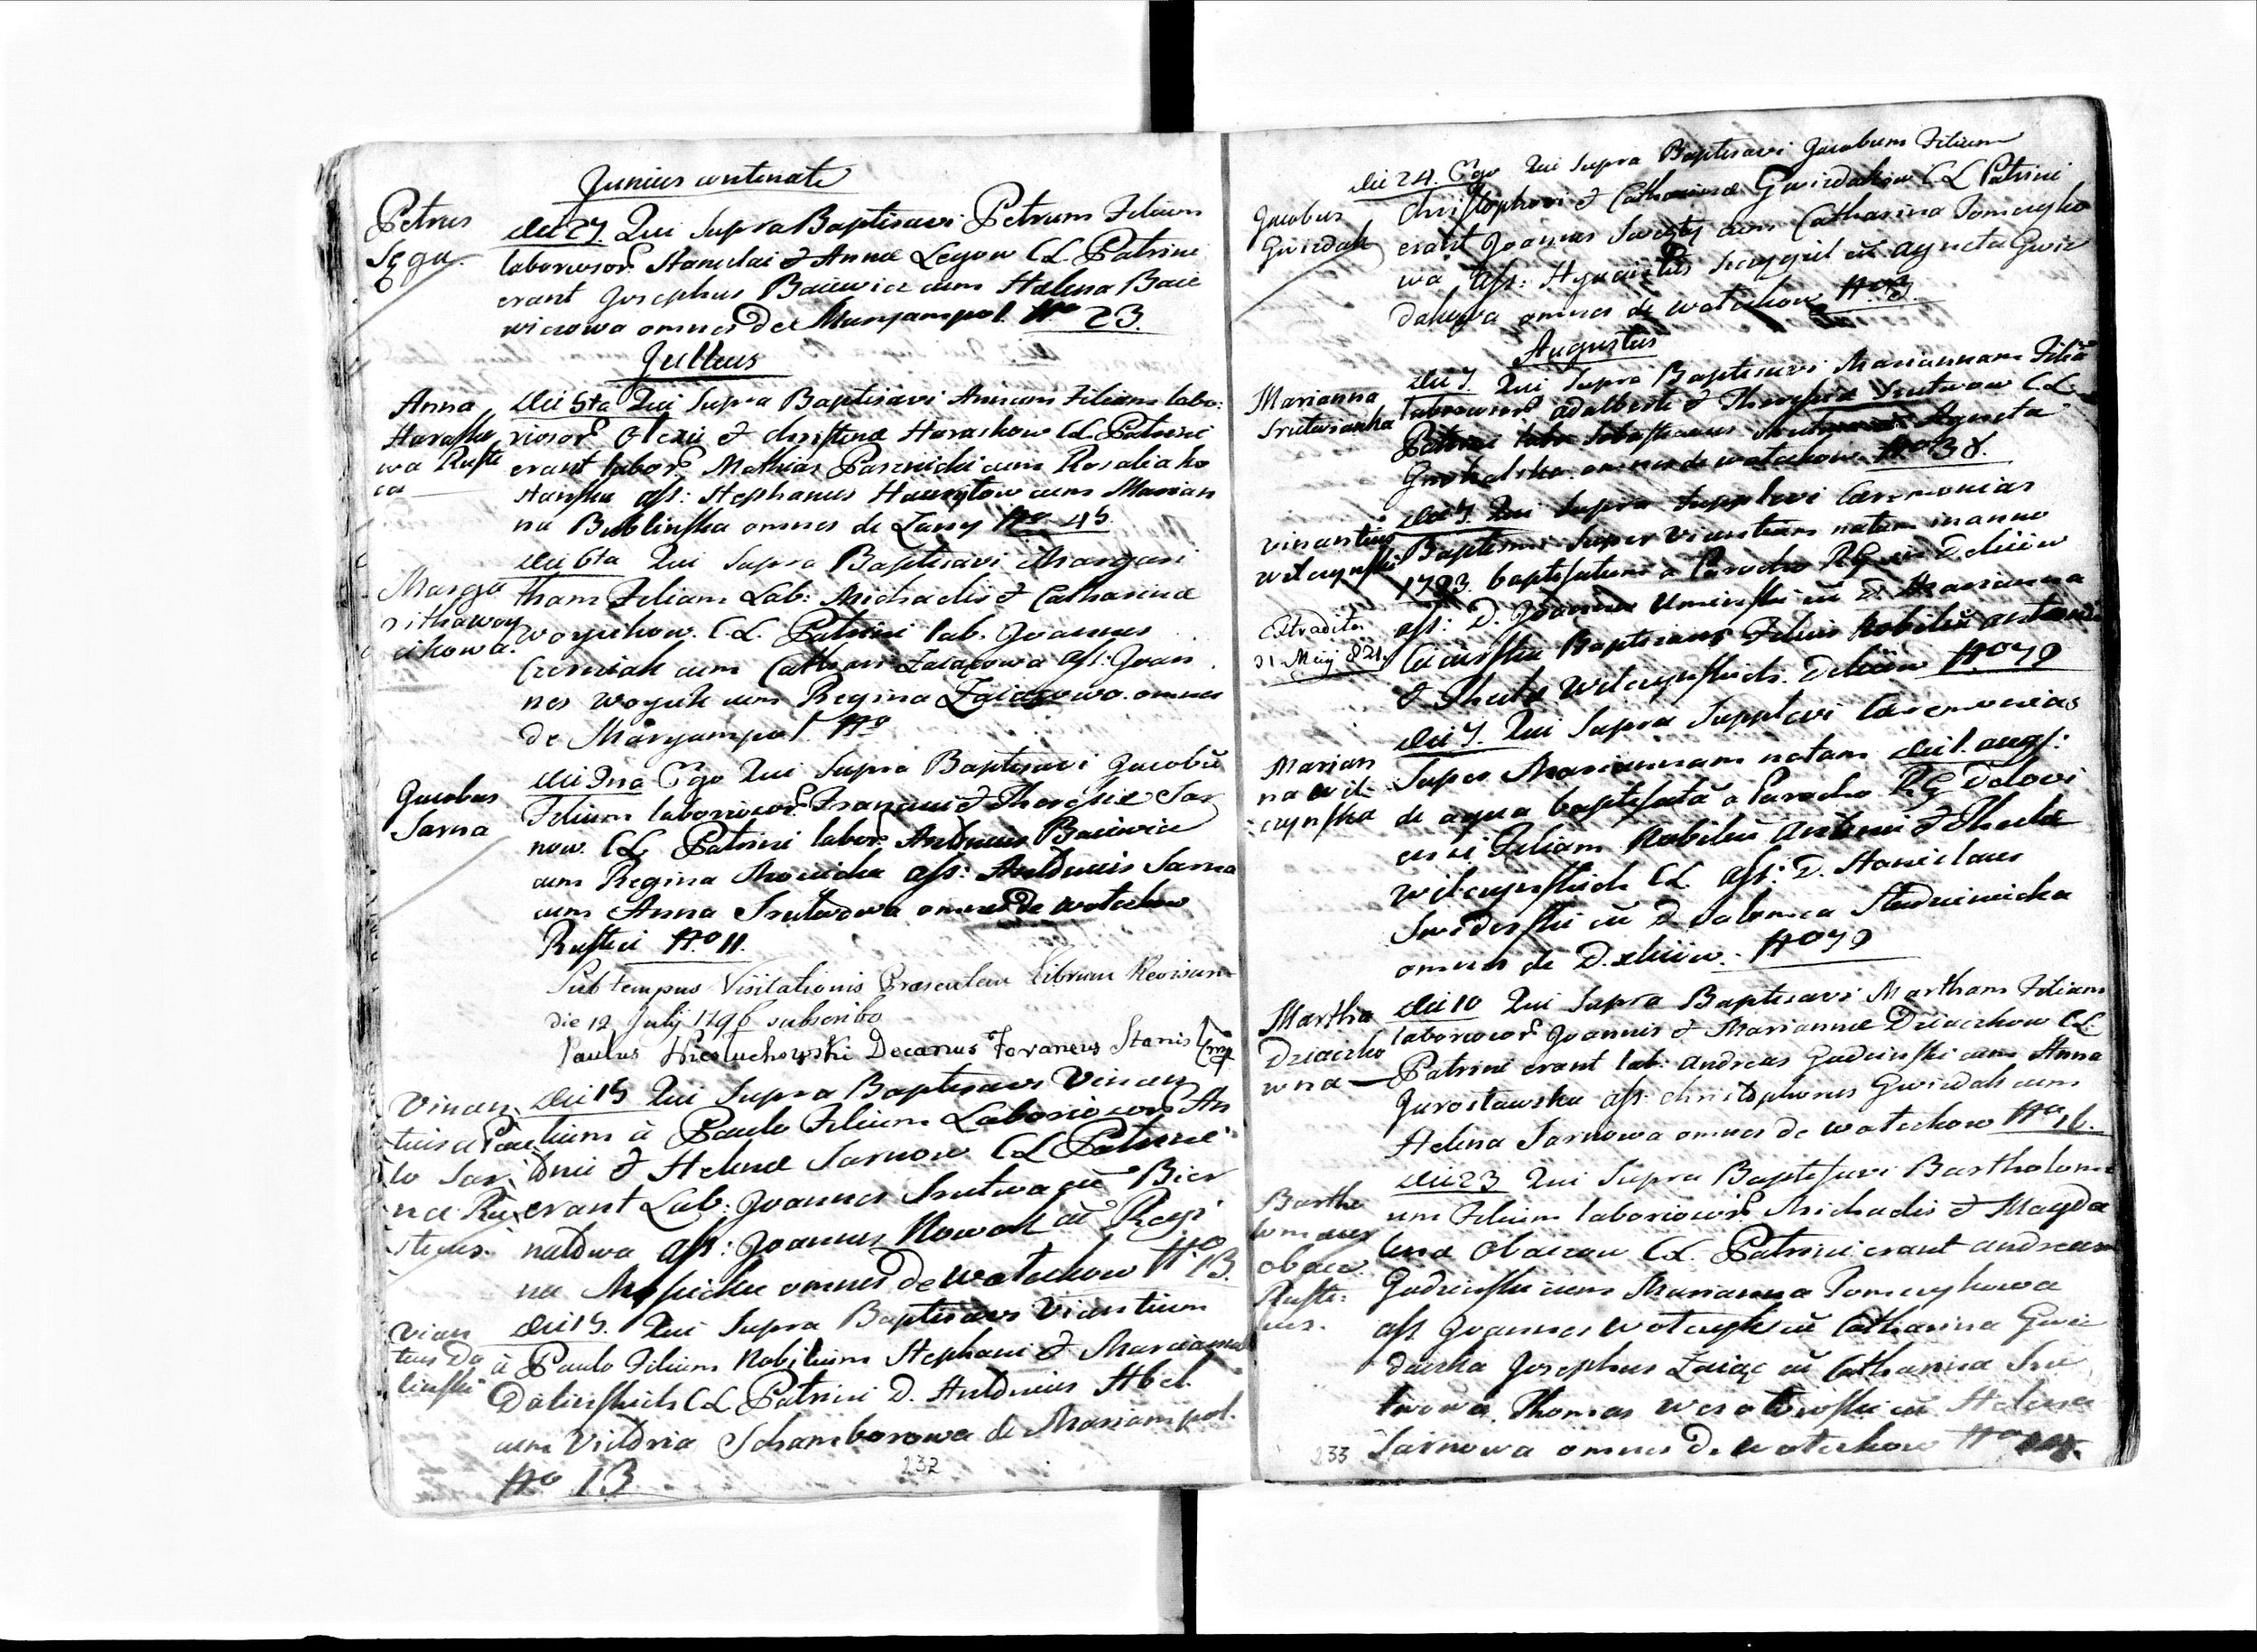 Junius continuatio
Petrus
Sęga
Die 27. Qui Supra Baptisavi Petrum Filium
laboriosor. Stanislai & Anna Segow C.L. Patrini
erant Josephus Baiewicz cum Halena Baie
wiczowa omnes de Maryampol. No 23.
Julius
Anna
Harasko
wa Rusti
ca
Die 5ta Qui Supra Baptisavi Annam Filiam labo:
riosor. Olexii & Christina Haraskow C.L. Patrini
erant labor. Mathias cum Rosalia Ko
stanska ass: Stephanus cum Marian
na Bublinska omnes de Łany No 45.
Marga
ritha Woy
cikowa
Die 6ta Qui Supra Baptisavi Margari
tham Filiam Lab: Michaelis & Catharina
Woycikow. C.L. Patrini lab. Joannes
cum Cathari Zaiącowa ass: Joan
nes Woycik cum Regina Zaiącowa omnes
de Maryampol. No
Jacobus
Sarna
Die 9na Ego Qui Supra Baptisavi Jacobū
Filium laboriosor. Francisci & Theresia Sar
now C.L. Patrini labor. Andreas Baiewicz
cum Regina ass: Antonius Sarna
cum Anna Srutwowa omnes de Wołczkow
Rustici No 11.
Sub tempus Visitationis Praesentem Librum Revisum
die 12 July 1796 subscribo
Paulus Decanus Foraneus Stanis
Vincen
tius a Pau
lo Sar
na Ru
sticus.
Die 15 Qui Supra Baptisavi Vincen
tium à Paulo Filium Laboriosor. An
tonii & Helena Sarnow C.L. Patrini
erant Lab: Joannes Srutwa cū Bier
natowa ass: Joannes Nowak cū Regi
na omnes de Wołczkow No 13.
Vicen
tius Do
linski
Die 15. Qui Supra Baptisavi Vicentium
à Paulo Filium Nobilium Stephani & Marianna
Dolinskich C.L. Patrini D. Antonius Abel
cum Victoria Schamborowa de Mariampol.
No 13
232
Jacobus
Gwizdak
Die 24. Ego Qui Supra Baptisavi Jacobum Filium
Christophori & Catharina Gwizdakow C.L. Patrini
erant Joannes cum Catharina Pomczyko
wa ass: Hyacintus cū Agneta Gwiz
dakowa omnes de Wołczkow No
Augustus
Marianna
Srutwianka
Die 7. Qui Supra Baptisavi Mariannam Filiā
laboriosor. Adalberti & Theresia Srutwow C.L.
Patrini labo Sebastianus Agneta
omnes de Wołczkow No 38.
Vincentius
Wilczynski
Extraditū
31 Maij 821.
Die 7. Qui Supra Supplevi Caeremonias
Baptismi Super Vicentium natum in anno
1793. baptisatum a Parocho RG in Deliiow
ass: D. Joannes Uminski cū D. Marianna
Baptisans Filius Nobiliū Antoni
& Thecla Wilczynskich. Deliiow No 79
Marian
na Wil
czynska
Die 7. Qui Supra Supplevi Caeremonias
Super Mariannam natam die 1. aug:
de aqua baptisatā a Parocho RG Delovi
ensi Filiam Nobiliū Antoni & Thecla
Wilczynskich C.L. ass: D. Stanislaus
Swiderski cū D. Salomea Studzinicka
omnes de Deliiow. No 79
Martha
Dziaczko
wna
Die 10 Qui Supra Baptisavi Martham Filiam
laboriosor. Joannis & Marianna Dziaczkow C.L.
Patrini erant lab: Andreas Gudzinski cum Anna
Jurosławska ass: Christophorus Gwizdak cum
Helena Sarnowa omnes de Wołczkow No 16.
Bartho
lomaeus
Obacz
Rusti:
cus.
Die 23 Qui Supra Baptisavi Bartholome
um Filium laboriosor. Michaelis & Magda
lena Obaczow C.L. Patrini erant Andreas
Gudzinski cum Marianna Pomczykowa
ass Joannes Wołczyk cū Catharina Gwiz
daczka Josephus Zaiąc cū Catharina Sru
twowa. Thomas cū Helena
Sarnowa omnes de Wołczkow No
233